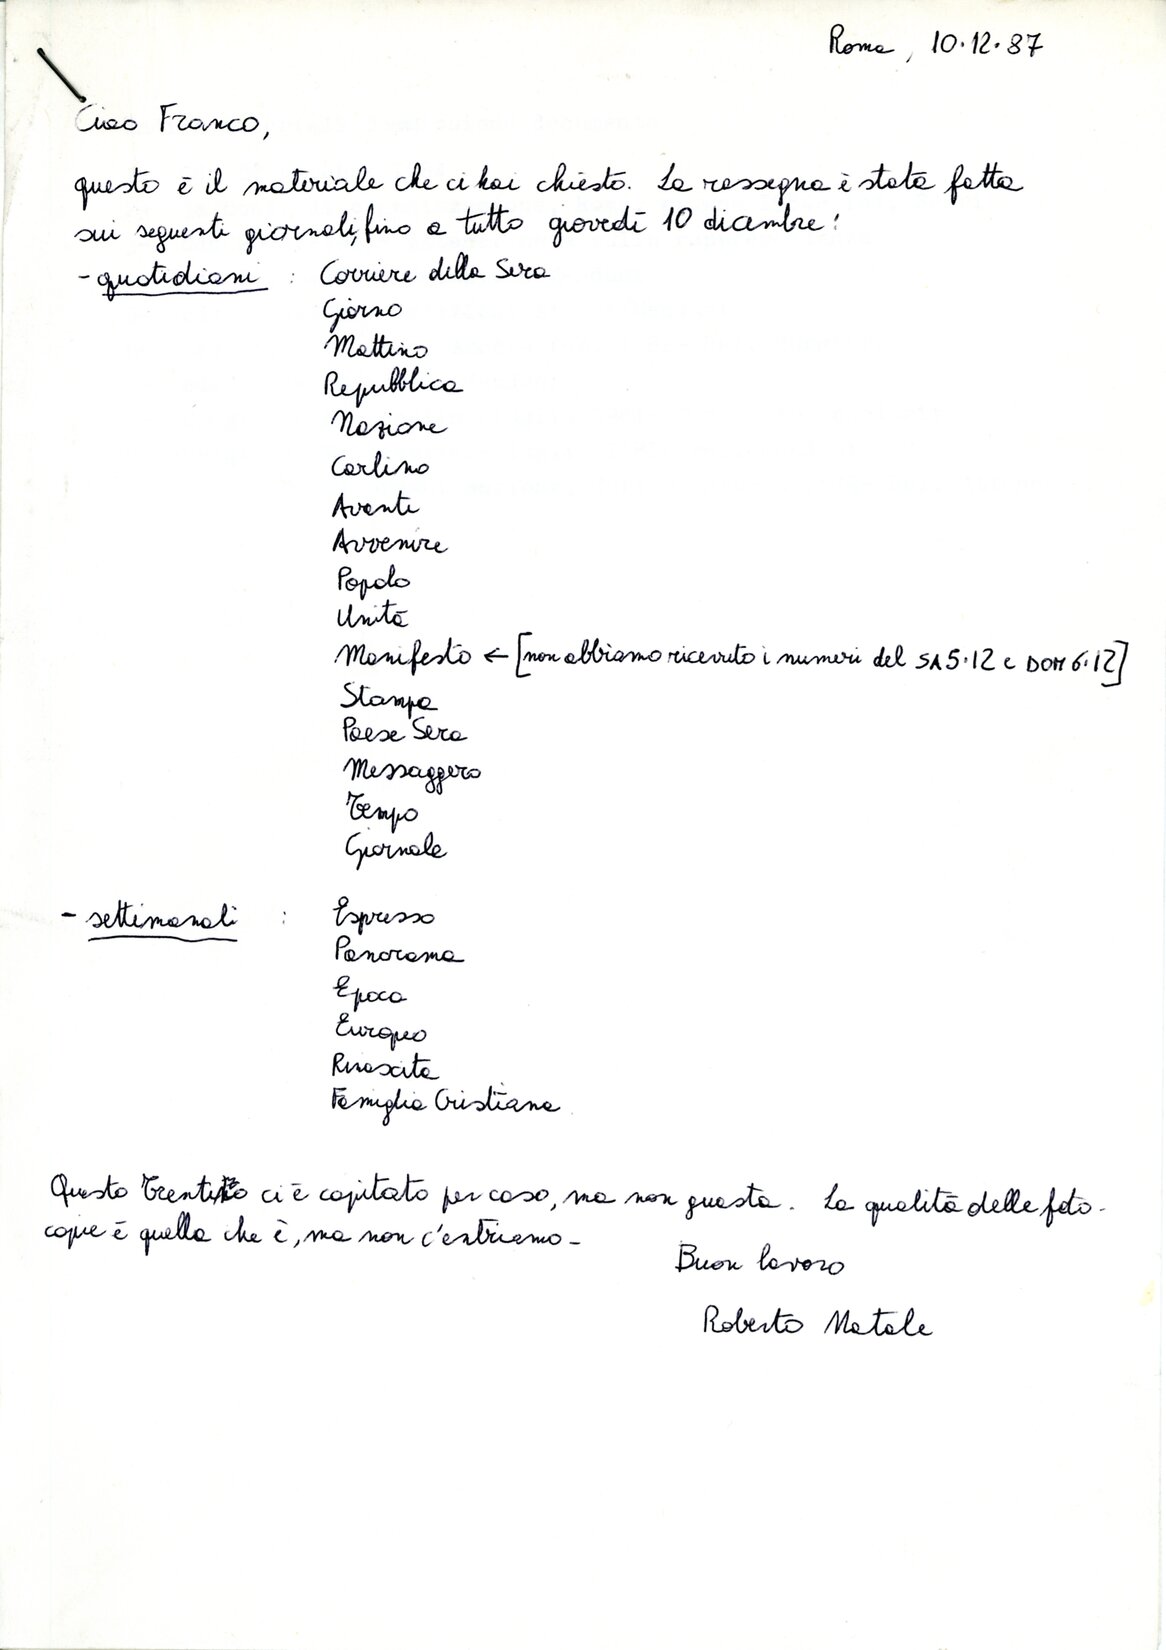 Roma, 10.12.87
Ciao Franco,
questo è il materiale che ci hai chiesto. La rassegna è stata fatta
sui seguenti giornali, fino a tutto giovedì 10 dicembre:
- quotidiani : Corriere della Sera
Giorno
Mattino
Repubblica
Nazione
Carlino
Avanti
Avvenire
Popolo
Unità
Manifesto ← [non abbiamo ricevuto i numeri del SA 5.12 e DOM 6.12]
Stampa
Paese Sera
Messaggero
Tempo
Giornale
- settimanali : Espresso
Panorama
Epoca
Europeo
Rinascita
Famiglia Cristiana
Questo ci è capitato per caso, ma non guasta. La qualità delle foto-
copie è quella che è, ma non c'entriamo -
Buon lavoro
Roberto Natale